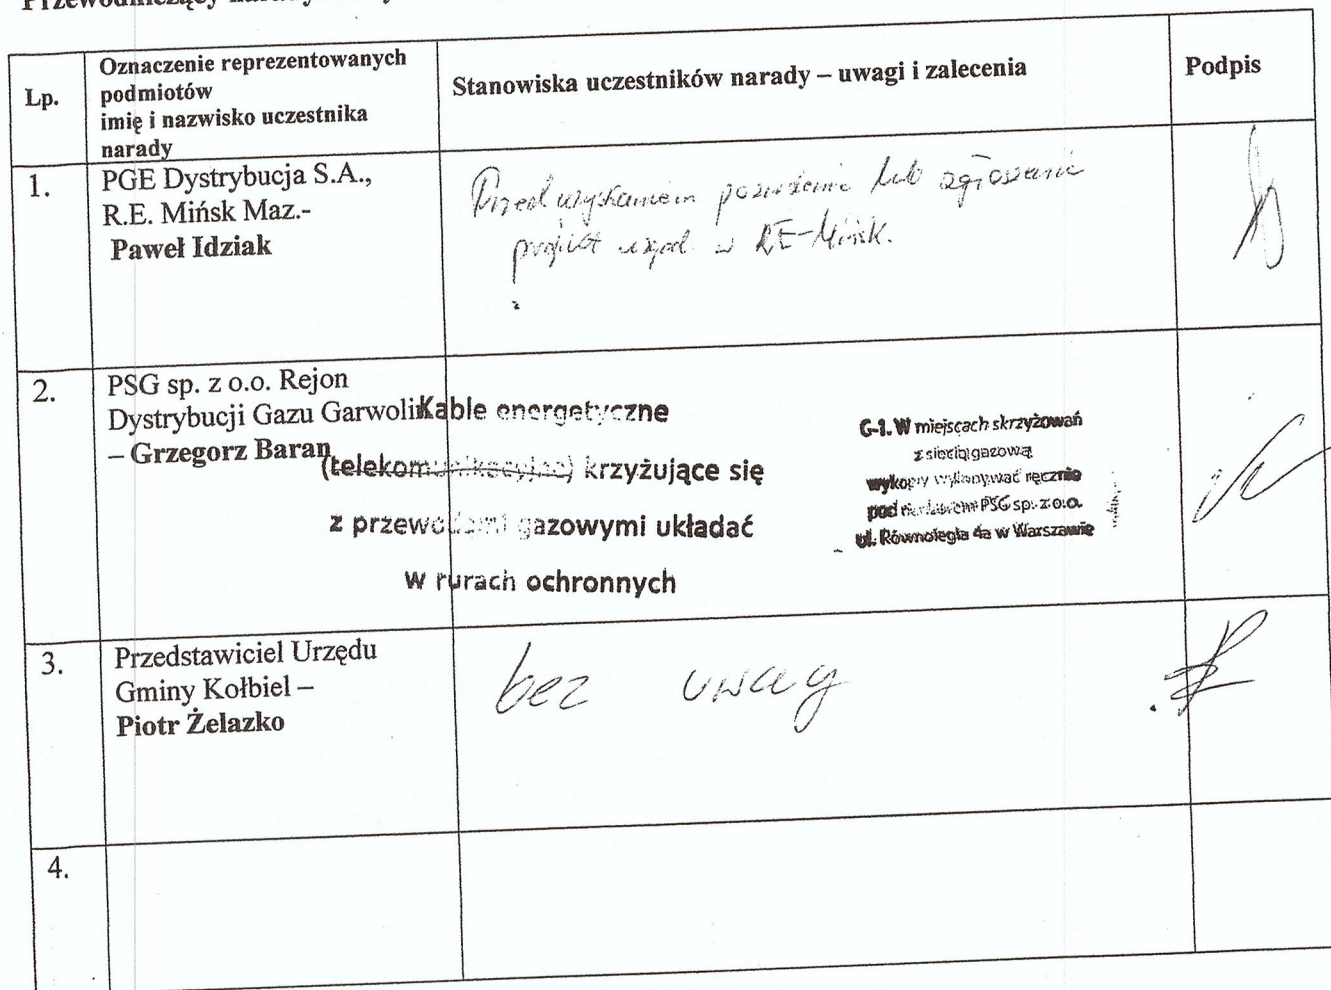 Przewodniczący narady
Lp.
Oznaczenie reprezentowanych
podmiotów
imię i nazwisko uczestnika
narady
Stanowiska uczestników narady – uwagi i zalecenia
Podpis
1.
PGE Dystrybucja S.A.,
R.E. Mińsk Maz.-
Paweł Idziak
Przed uzyskaniem pozwolenia lub zgłoszenia
projekt uzgod. w RE-Mińsk.
2.
PSG sp. z o.o. Rejon
Dystrybucji Gazu Garwolin
– Grzegorz Baran
Kable energetyczne
(telekomunikacyjne) krzyżujące się
z przewodami gazowymi układać
w rurach ochronnych
G-1. W miejscach skrzyżowań
z siecią gazową
wykopy wykonywać ręcznie
pod nadzorem PSG sp. z o.o.
ul. Równoległa 4a w Warszawie
3.
Przedstawiciel Urzędu
Gminy Kołbiel –
Piotr Żelazko
bez uwag
4.